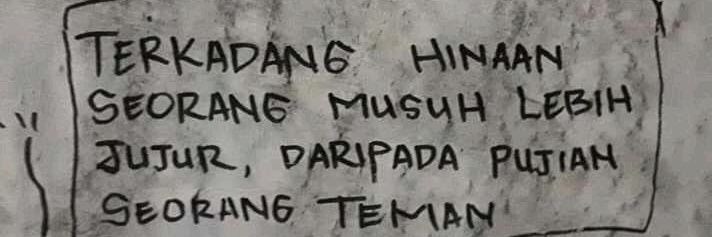 TERKADANG HINAAN
SEORANG MUSUH LEBIH
JUJUR, DARIPADA PUJIAN
SEORANG TEMAN